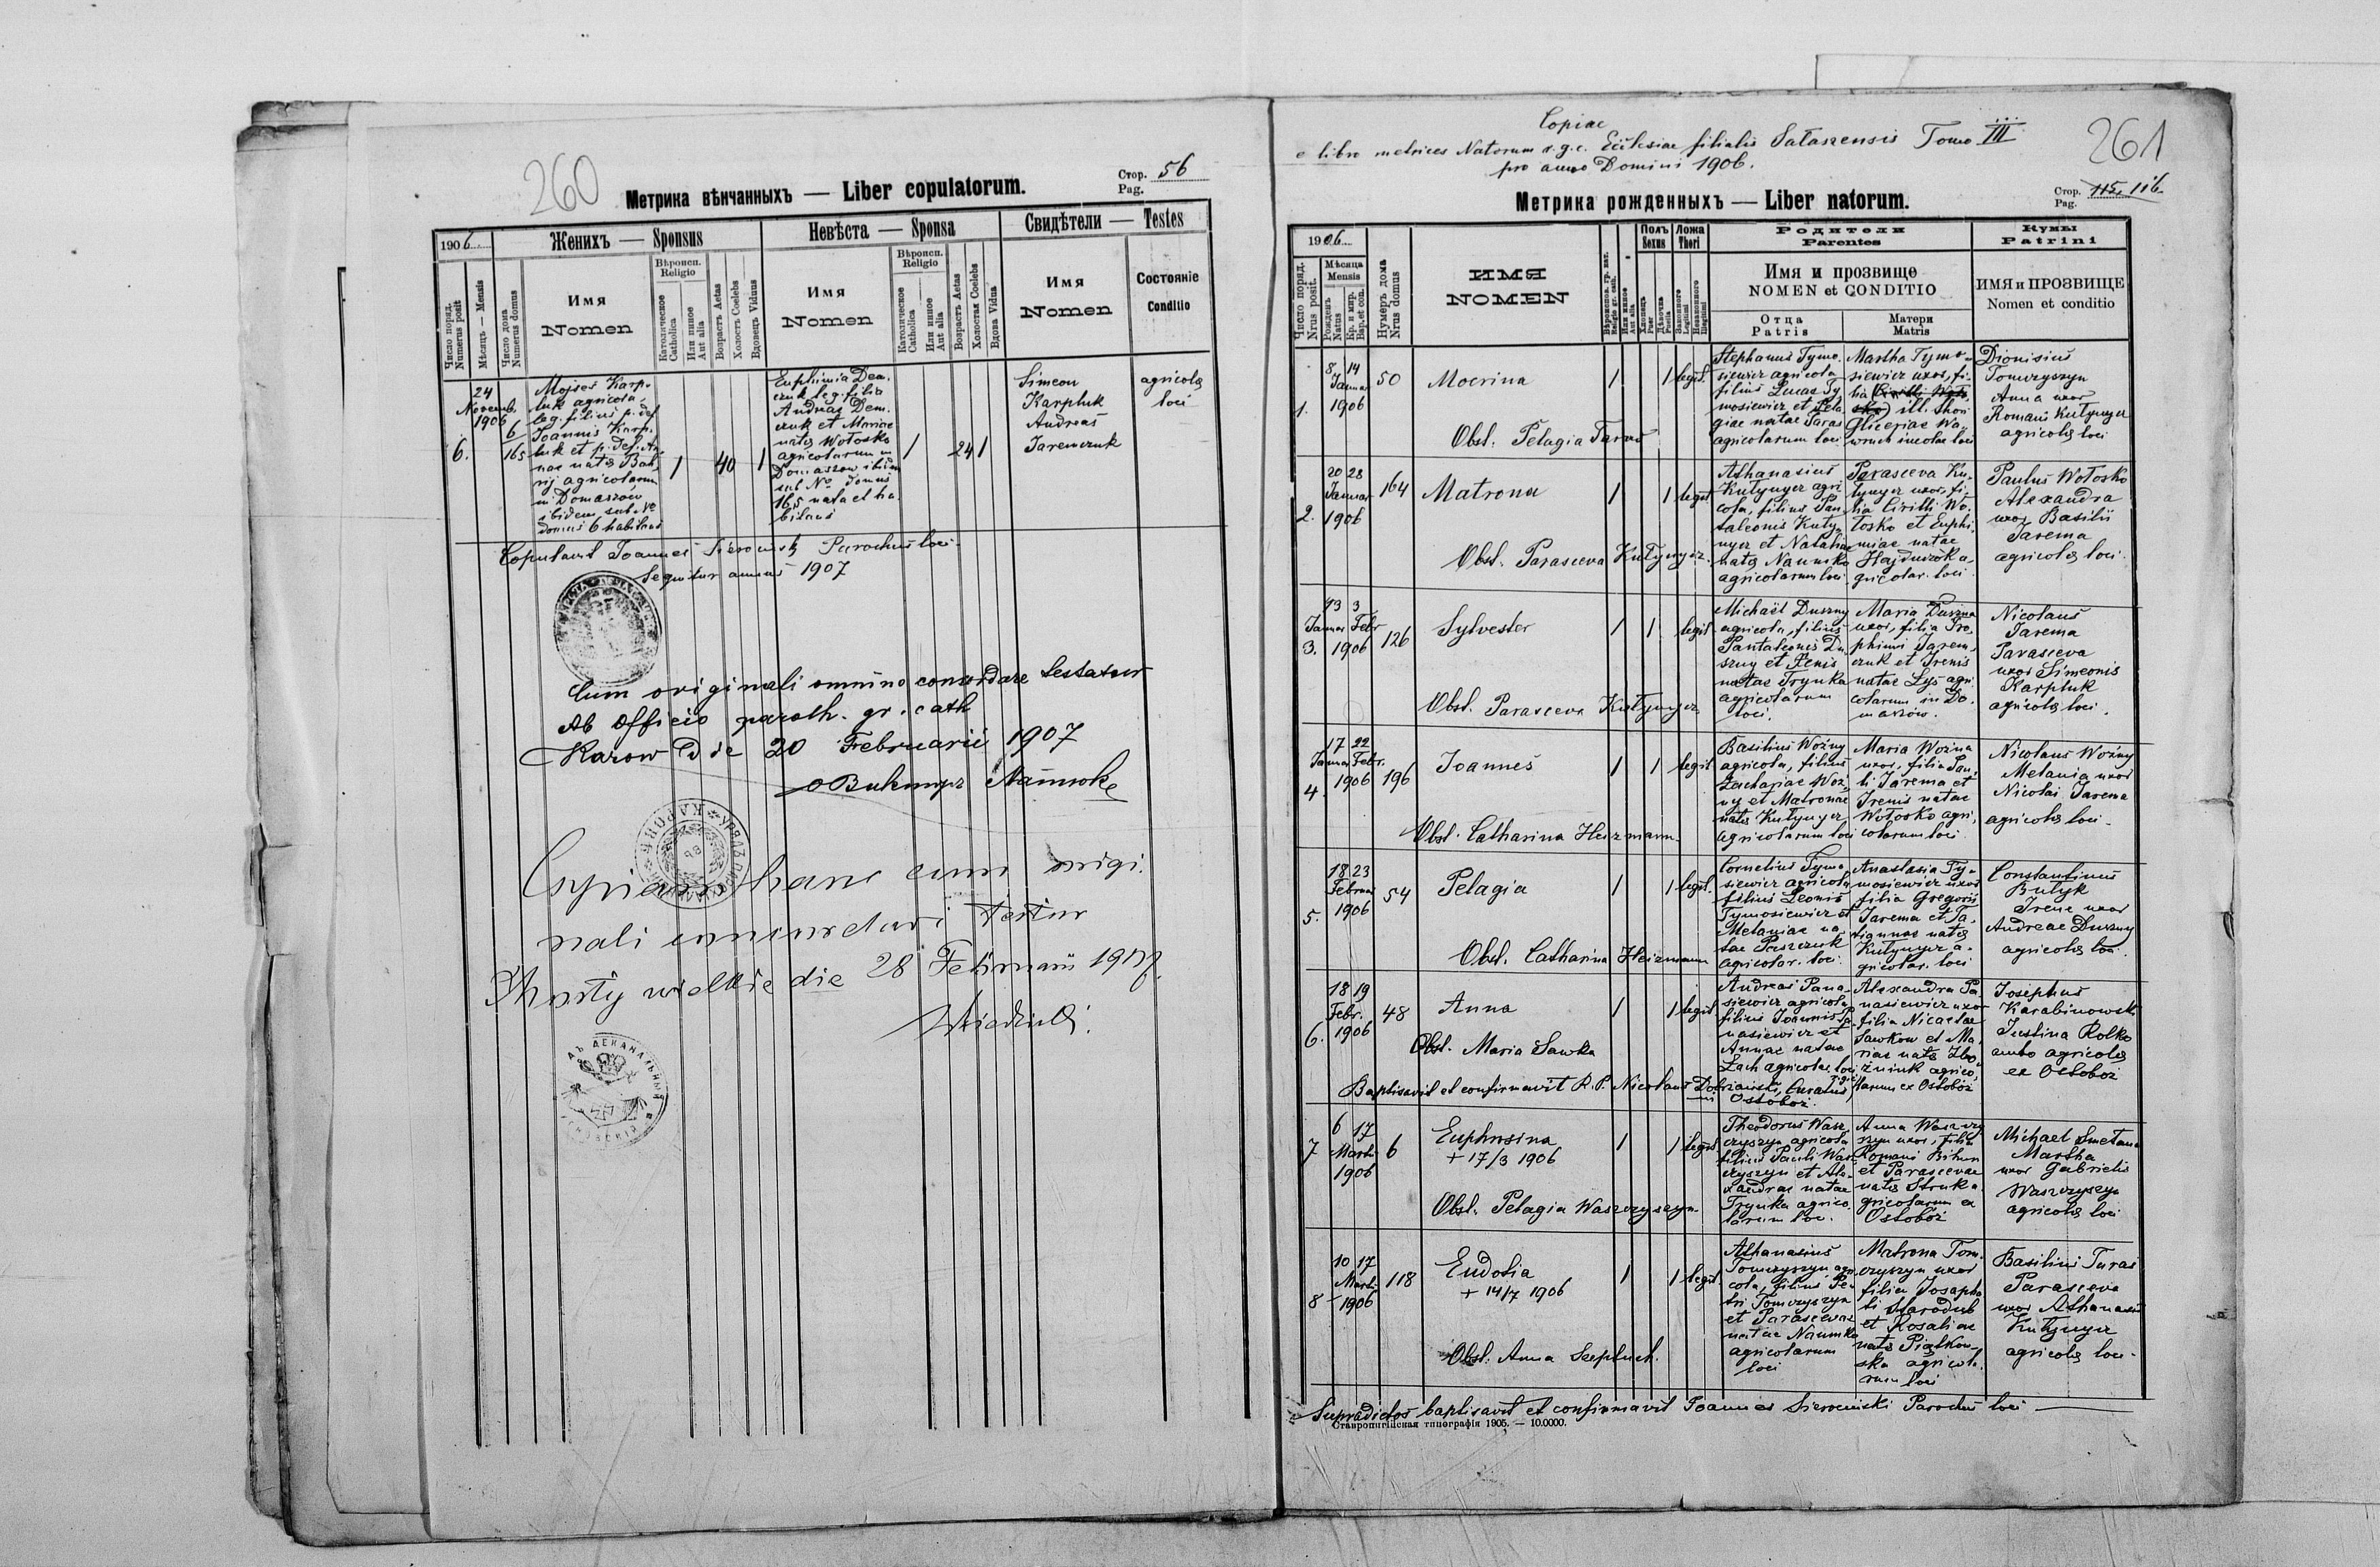 260
Метрика вѣнчанныхъ — Liber copulatorum.
Стор. 56
Pag.
1906
Женихъ — Sponsus
Невѣста — Sponsa
Свидѣтели — Testes
Число поряд.
Numerus posit
Мѣсяць — Mensis
Число дома
Numerus domus
Имя
Nomen
Вѣроисп.
Religio
Католическое
Catholica
Или иное
Aut alia
Возрастъ Aetas
Холостъ Coelebs
Вдовецъ Viduus
Имя
Nomen
Вѣроисп.
Religio
Католическое
Catholica
Или иное
Aut alia
Возрастъ Aetas
Холостая Coelebs
Вдова Vidua
Имя
Nomen
Состоянiе
Conditio
6.
24
Novemb.
1906
6
165
Mojses Karp-
luk agricola,
leg. filius p. def.
Joannis Karp-
luk et p. def. An-
nae natae
agricolarum
in Domaszów
ibidem sub No
domus 6 habitans
1
40
1
Euphimia Dem-
czuk leg. filia
Andreae Dem-
czuk et Mariae
natae Wołosko
agricolarum in
Domaszow ibidem
sub No domus
165 nata et ha-
bitans
1
24
1
Simeon
Karpluk
Andreas
Jaremczuk
agricolae
loci
Copulavit Joannes Sierociński Parochus loci
Sequitur annus 1907
Cum originali omnino concordare testatur
Ab Officio paroch. gr. cath
Karow die 20 Februarii 1907
Copiam hanc cum origi-
nali concordari testor
Chorty wielkie die 28 Februarii 1907.
Copiae
e libro metrices Natorum r. g. c. Ecclesiae filialis Sataszensis Tomo III
pro anno Domini 1906.
261
Метрика рожденныхъ — Liber natorum.
Стор. 115. 116.
Pag.
1906
Число поряд.
Nrus posit.
Мѣсяца
Mensis
Рожденъ
Natus
Кр. и мир.
Bap. et con.
Нумеръ дома
Nrus domus
ИМЯ
NOMEN
Вѣроиспов. гр. кат.
Religio gr. cath.
Или инное
Aut alia
Полъ
Sexus
Хлопецъ
Puer
Дѣвочка
Puella
Ложа
Thori
Законного
Legitimi
Незаконного
Illegitimi
Родители
Parentes
Имя и прозвище
NOMEN et CONDITIO
Отца
Patris
Матери
Matris
Кумы
Patrini
ИМЯ и ПРОЗВИЩЕ
Nomen et conditio
1.
8 14
Januar
1906
50
Mocrina
1
1
legit.
Obst. Pelagia Taras
Stephanus Tymo-
siewicz agricola
filius Lucae Ty-
mosiewicz et Pela-
giae natae Taras
agricolarum loci
Martha Tymo-
siewicz uxor, fi-
lia ill. thori
Gliceriae Wa-
wruch incolae loci
Dionisius
Tomczyszyn
Anna uxor
Romani Kutynyer
agricolae loci
2.
20 28
Januar
1906
164
Matrona
1
1
legit.
Obst. Parasceva Kutynyez.
Athanasius
Kutynyer agri-
cola, filius Pan-
taleonis Kuty-
nyer et Nataliae
natae Naumko
agricolarum loci
Parasceva Ku-
tynyer uxor, fi-
lia Cirilli Wo-
łosko et Euphi-
miae natae
Hajduczok a-
gricolar. loci
Paulus Wołosko
Alexandra
uxor Basilii
Jarema
agricolae loci.
3.
13 3
Januar Febr
1906
126
Sylvester
1
1
legit.
Obst. Parasceva Kutynyez
Michael Duszny
agricola, filius
Pantaleonis Du-
szny et Xenis
natae Trynka
agricolarum
loci.
Maria Duszna
uxor, filia Tro-
phimi Jarem-
czuk et Irenis
natae Lys agri-
colarum in Do-
maszów.
Nicolaus
Jarema
Parasceva
uxor Simeonis
Karpluk
agricolae loci.
4.
17 22
Januar Febr.
1906
196
Joannes
1
1
legit
Obst. Catharina Heizmann
Basilius Woźny
agricola, filius
Zachariae Woź-
ny et Matronae
natae Kutynyer
agricolarum loci
Maria Woźna
uxor, filia Pau-
li Jarema et
Irenis natae
Wołosko agri-
colarum loci
Nicolaus Woźny
Melania uxor
Nicolai Jarema
agricolae loci.
5.
18 23
Februar
1906
54
Pelagia
1
1
legit.
Obst. Catharina Heizmann
Cornelius Tymo-
siewicz agricola
filius Leonis
Tymosiewicz et
Melaniae na-
tae Paszczuk
agricolar. loci.
Anastasia Ty-
mosiewicz uxor
filia Gregorii
Jarema et Ta-
tiannae natae
Kutynyer a-
gricolar. loci
Constantinus
Butyk
Irene uxor
Andreae Duszny
agricolae loci.
6.
18 19
Febr.
1906
48
Anna
1
1
legit
Obst. Maria Sawka
Andreas Pana-
siewicz agricola
filius Joannis Pa-
nasiewicz et
Annae natae
Lach agricolar. loci
Alexandra Pa-
nasiewicz uxor
filia Nicaetae
Sawkow et Ma-
riae natae
agrico-
larum ex Ostobóż
Josephus
Karabinowski
Justina Rolko
ambo agricolae
ex Ostoboż
Baptisavit et confirmavit R. P. Nicolaus Curatus in
Ostobóż.
7
6 17
Martii
1906
6
Euphrosina
+ 17/3 1906
1
1
legit.
Obst. Pelagia Waszczyszyn
Theodorus Wasz-
czyszyn agricola
filius Pauli Wasz-
czyszyn et Ale-
xandrae natae
Trynka agrico-
larum loci.
Anna Waszczy-
szyn uxor, filia
Romani Bihun
et Parascevae
natae Struk a-
gricolarum ex
Ostobóż
Michael Smetana
Martha
uxor Gabrielis
Waszczyszyn
agricolae loci
8
10 17
Martii
1906
118
Eudotia
+ 14/7 1906
1
1
legit.
Obst. Anna Szeptuch.
Athanasius
Tomczyszyn agri-
cola, filius Pe-
tri Tomczyszyn
et Parascevae
natae Naumko
agricolarum
loci
Matrona Tom-
czyszyn uxor
filia Josapha-
ti Starodub
et Rosaliae
natae Piątkow-
ska agricola-
rum loci
Basilius Taras
Parasceva
uxor Athanasii
Kutynyer
agricolae loci.
Supradictos baptisavit et confirmavit Joannes Sierociński Parochus loci
Ставропигійская типографія 1905. — 10.0000.